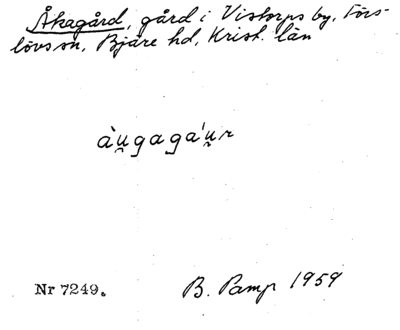 Åkagård, gård i Vistorps by, Förs-
lövs sn, Bjäre hd, Krist. län
àu̯gagáu̯r
Nr 7249.
B. Pamp 1959